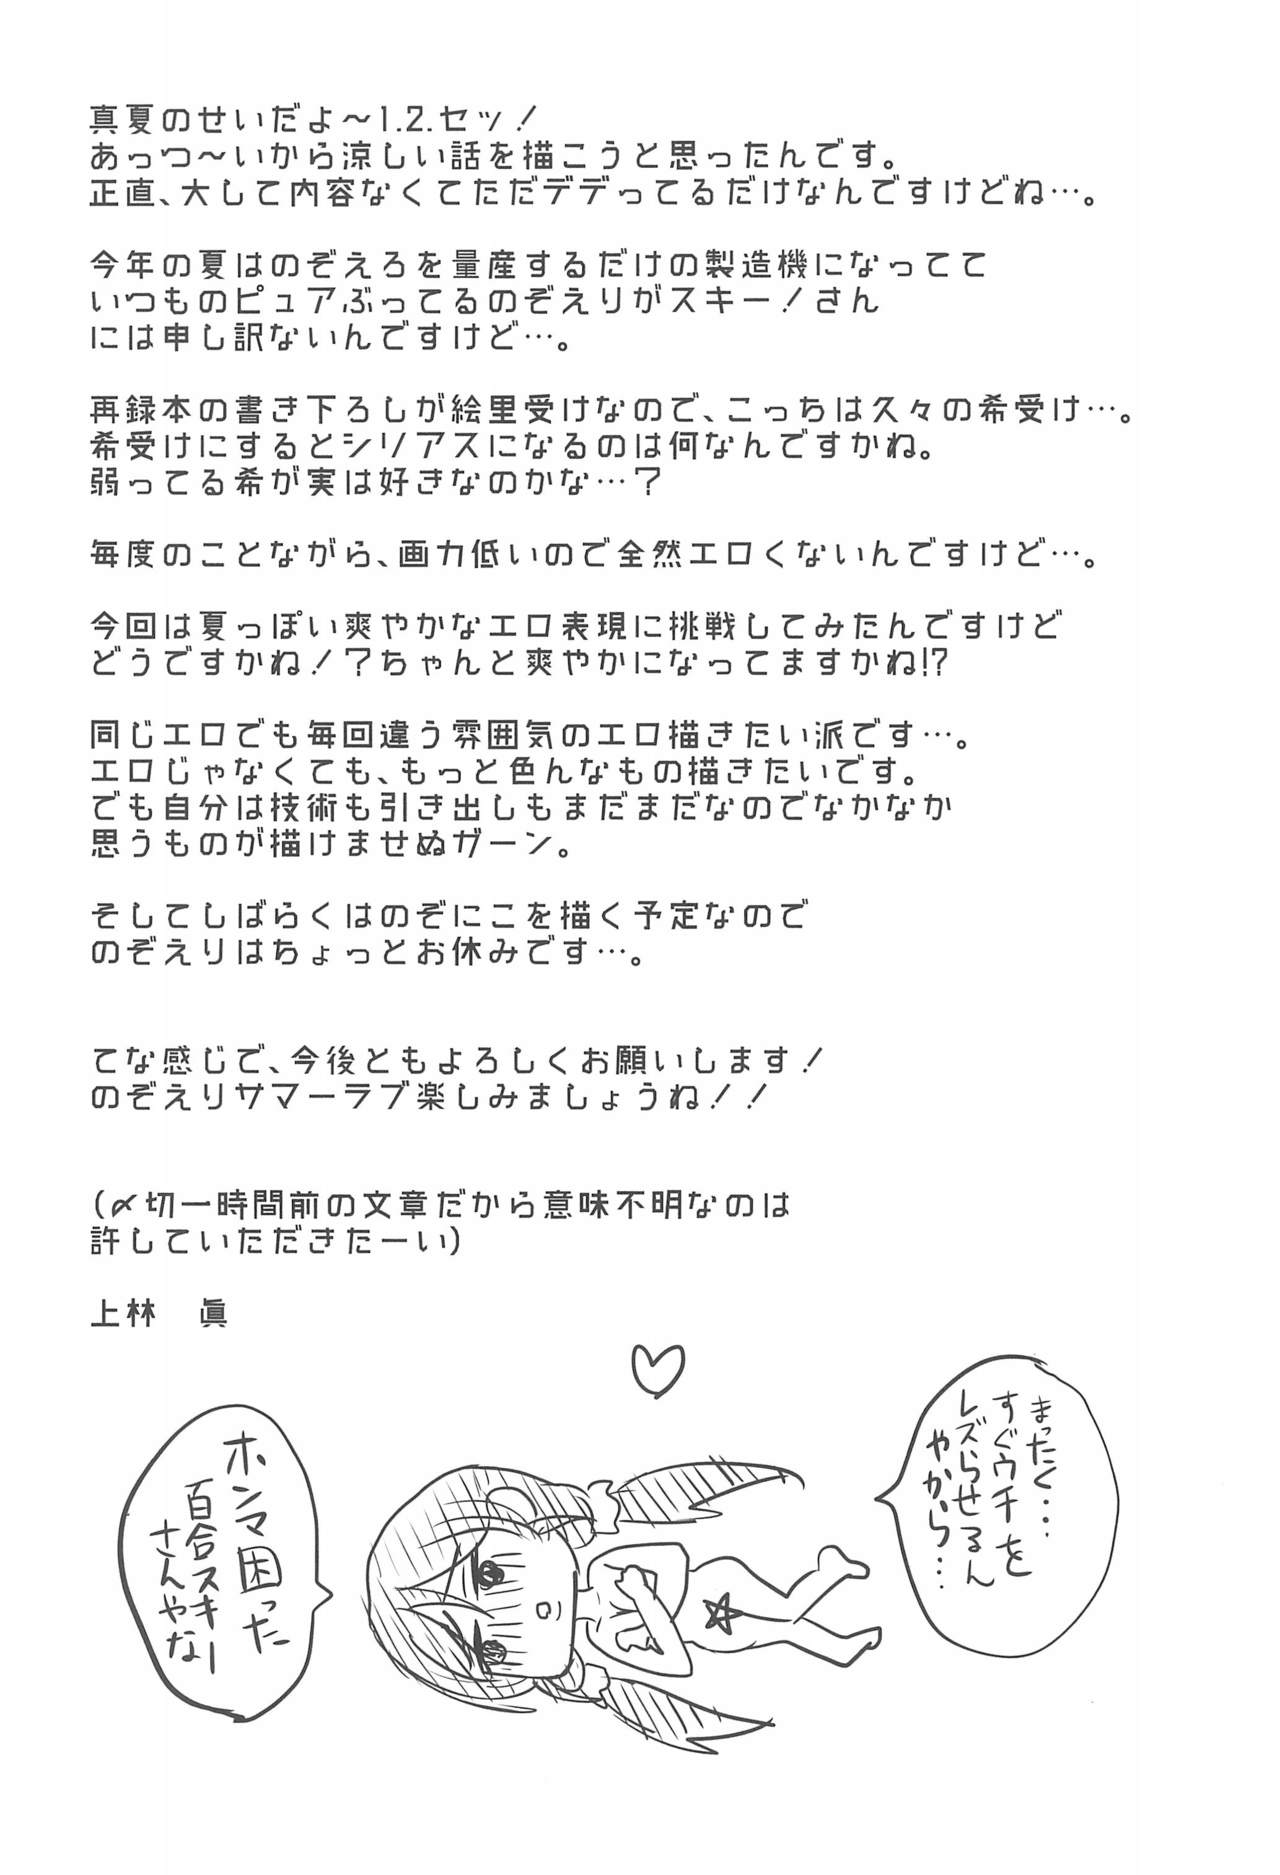 真夏のせいだよ～1.2.セッ！
あっつ～いから涼しい話を描こうと思ったんです。
正直、大して内容なくてただデデってるだけなんですけどね…。
今年の夏はのぞえろを量産するだけの製造機になってて
いつものピュアぶってるのぞえりがスキー！さん
には申し訳ないんですけど…。
再録本の書き下ろしが絵里受けなので、こっちは久々の希受け…。
希受けにするとシリアスになるのは何なんですかね。
弱ってる希が実は好きなのかな…？
毎度のことながら、画力低いので全然エロくないんですけど…。
今回は夏っぽい爽やかなエロ表現に挑戦してみたんですけど
どうですかね！？ちゃんと爽やかになってますかね!?
同じエロでも毎回違う雰囲気のエロ描きたい派です…。
エロじゃなくても、もっと色んなもの描きたいです。
でも自分は技術も引き出しもまだまだなのでなかなか
思うものが描けませぬガーン。
そしてしばらくはのぞにこを描く予定なので
のぞえりはちょっとお休みです…。
てな感じで、今後ともよろしくお願いします！
のぞえりサマーラブ楽しみましょうね！！
（〆切一時間前の文章だから意味不明なのは
許していただきたーい）
上林　眞
まったく…
すぐウチを
レズらせるん
やから…
ホンマ困った
百合スキー
さんやな